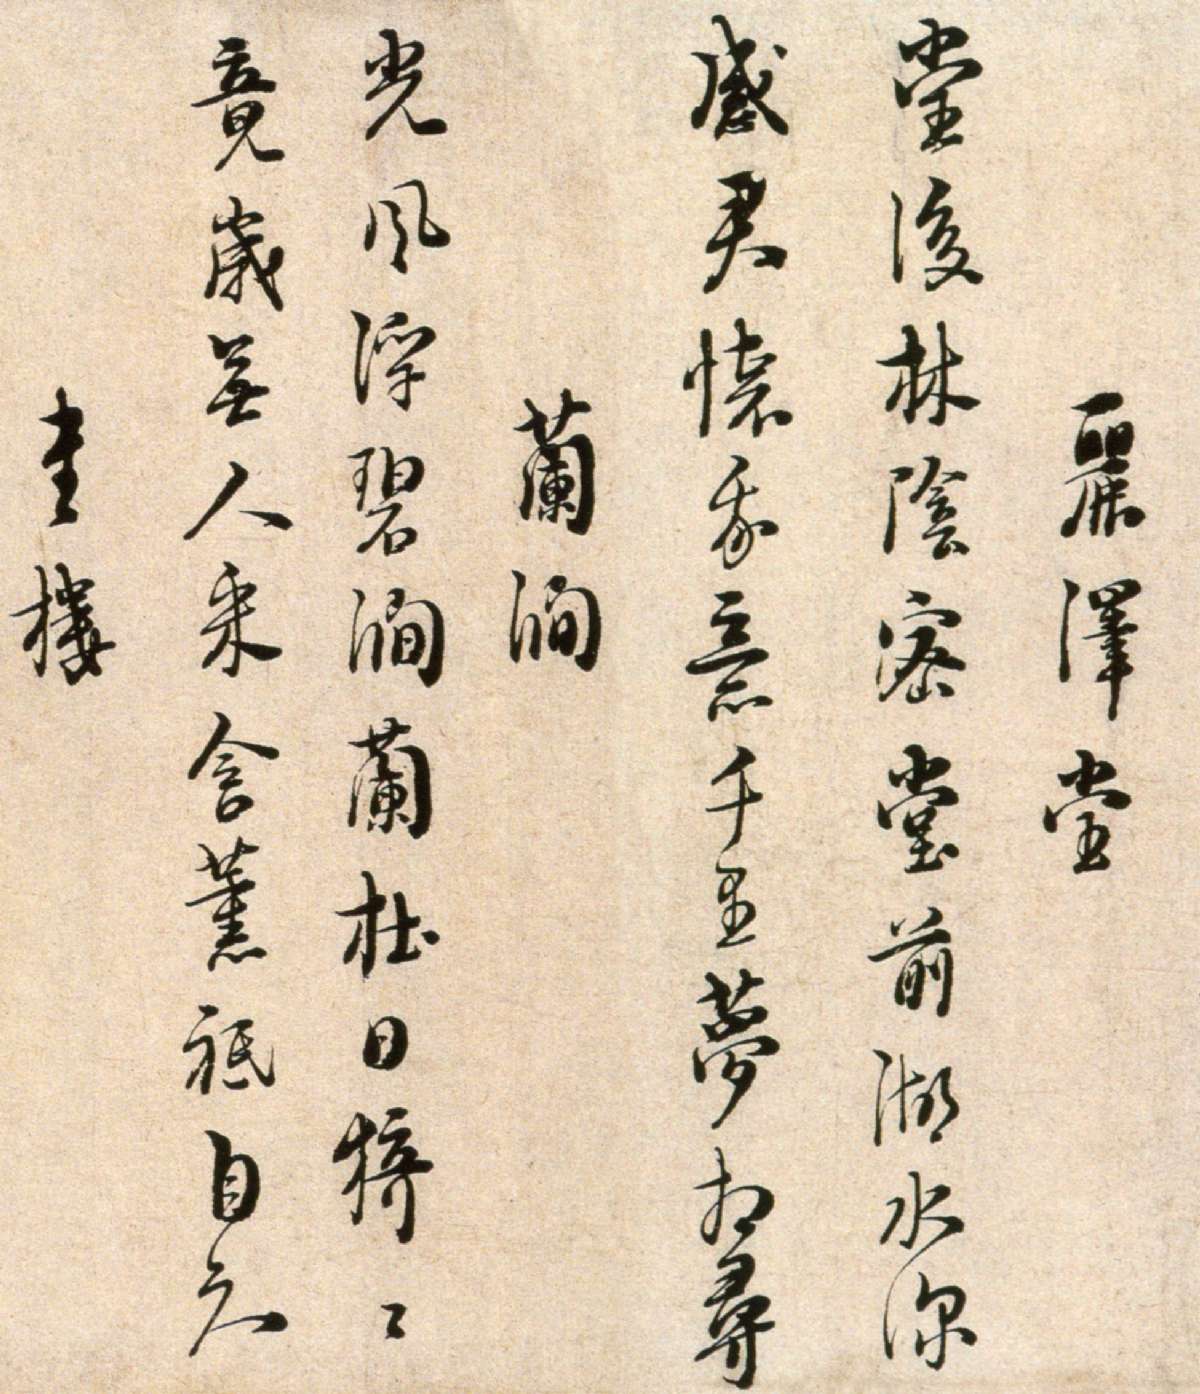 麗澤堂
堂後林陰密堂前湖水深
感君懷我意千里夢相尋
蘭澗
光風浮碧澗蘭杜日猗〻
竟歲無人采含薰祗自知
書樓